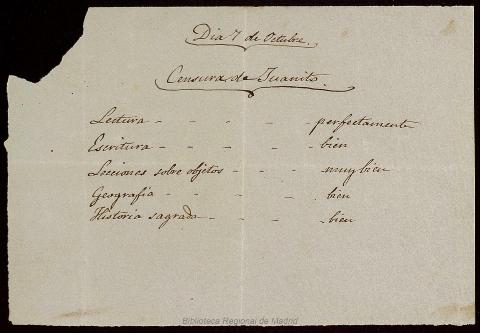 Dia 7 de Octubre.
Censura de Juanito.
Lectura - - - - - perfectamente
Escritura - - - - - bien
Lecciones sobre objetos - - - muy bien
Geografía - - - - - bien
Historia sagrada - - - - bien
Biblioteca Regional de Madrid